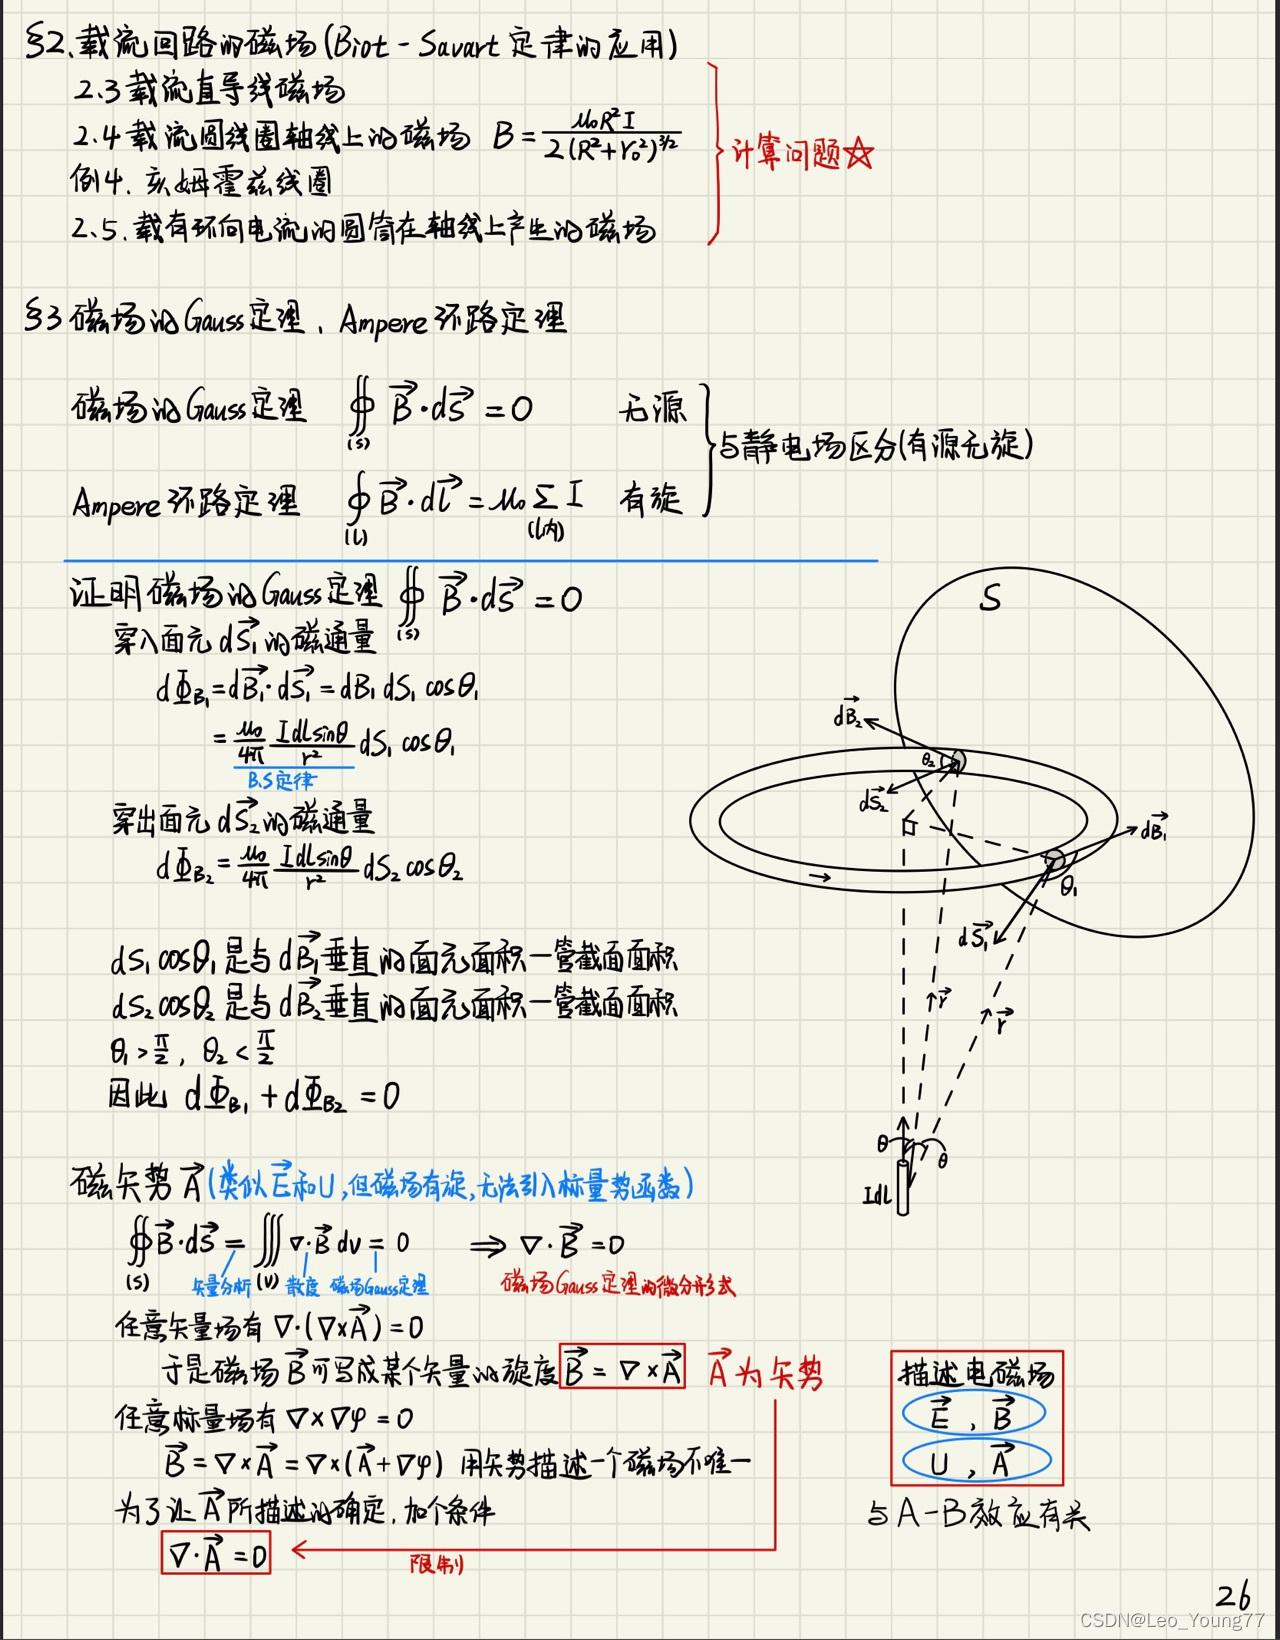 §2. 载流回路的磁场(Biot-Savart定律的应用)
2.3 载流直导线磁场
2.4 载流圆线圈轴线上的磁场 B = μ₀R²I / 2(R²+r₀²)^{3/2}
例4. 亥姆霍兹线圈
2.5. 载有环向电流的圆筒在轴线上产生的磁场
计算问题☆
§3 磁场的Gauss定理、Ampere环路定理
磁场的Gauss定理 ∯_(S) B⃗·dS⃗ = 0 无源
Ampere环路定理 ∮_(L) B⃗·dl⃗ = μ₀ Σ_(L内) I 有旋
与静电场区分(有源无旋)
证明磁场的Gauss定理 ∯_(S) B⃗·dS⃗ = 0
穿入面元 dS⃗₁ 的磁通量
dΦ_B₁ = dB⃗₁·dS⃗₁ = dB₁ dS₁ cosθ₁
= μ₀/4π Idl sinθ/r² dS₁ cosθ₁
B.S定律
穿出面元 dS⃗₂ 的磁通量
dΦ_B₂ = μ₀/4π Idl sinθ/r² dS₂ cosθ₂
dS₁ cosθ₁ 是与 dB⃗₁ 垂直的面元面积—管截面面积
dS₂ cosθ₂ 是与 dB⃗₂ 垂直的面元面积—管截面面积
θ₁ > π/2, θ₂ < π/2
因此 dΦ_B₁ + dΦ_B₂ = 0
S
dB⃗₂
θ₂
dS⃗₂
dB⃗₁
θ₁
dS⃗₁
r⃗
r⃗
θ
θ
Idl
磁矢势 A⃗ (类似E⃗和U,但磁场有旋,无法引入标量势函数)
∯_(S) B⃗·dS⃗ = ∭_(V) ∇·B⃗ dv = 0 ⟹ ∇·B⃗ = 0
矢量分析 散度 磁场Gauss定理 磁场Gauss定理的微分形式
任意矢量场有 ∇·(∇×A⃗) = 0
于是磁场 B⃗ 可写成某个矢量的旋度 B⃗ = ∇×A⃗ A⃗为矢势
任意标量场有 ∇×∇φ = 0
B⃗ = ∇×A⃗ = ∇×(A⃗+∇φ) 用矢势描述一个磁场不唯一
为了让 A⃗ 所描述的确定,加个条件
∇·A⃗ = 0
限制
描述电磁场
E⃗ , B⃗
U , A⃗
与A-B效应有关
26
CSDN@Leo_Young77